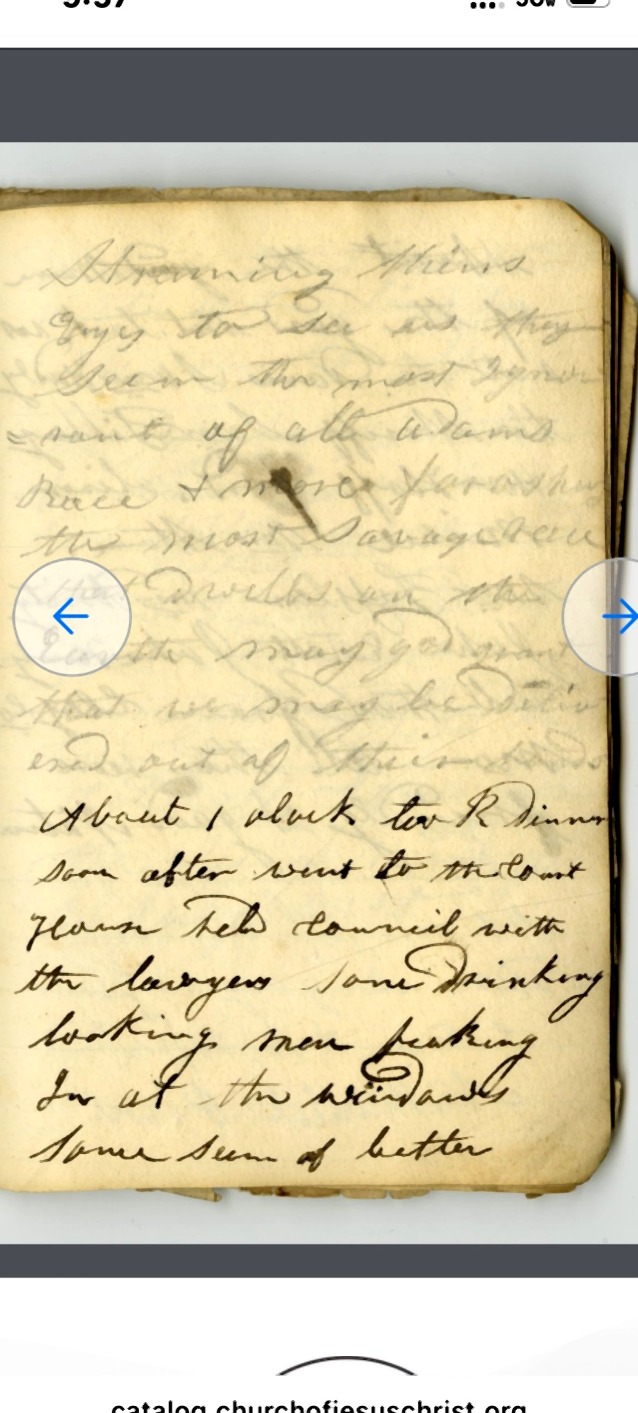 Straining thires
Eyes to see us they
seem the most Igno
=rant of all adams
Race & more
the most savage race
that Dwells on the
Earth may god grant
that we may be Deliv
ered out of their hands
About 1 olock took Dinner
soon after went to the Court
House held council with
the lawyers some Drinking
looking men peaking
In at the windows
some seem of better